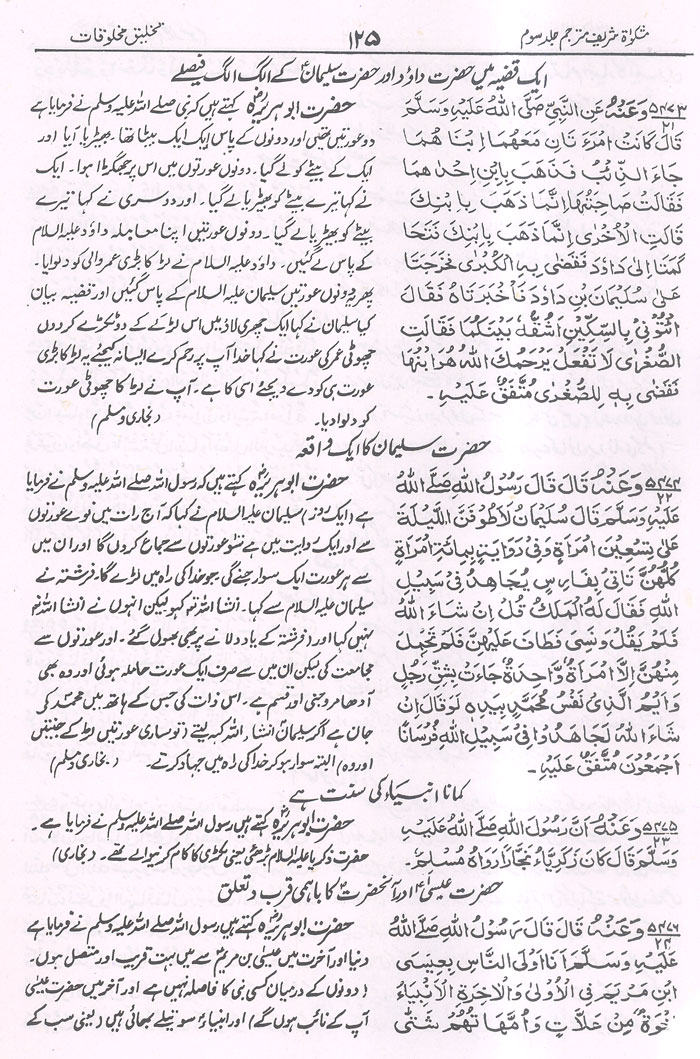 مشکوٰۃ شریف مترجم جلد سوم
۱۲۵
تخلیق مخلوقات
ایک قضیہ میں حضرت داؤد اور حضرت سلیمانؑ کے الگ الگ فیصلے
۵۴۷۳ وَعَنْهُ عَنِ النَّبِيِّ صَلَّى اللهُ عَلَيْهِ وَسَلَّمَ
۲۱
قَالَ كَانَتِ امْرَءَتَانِ مَعَهُمَا ابْنَاهُمَا
جَاءَ الذِّئْبُ فَذَهَبَ بِابْنِ اِحْدٰهُمَا
فَقَالَتْ صَاحِبَتُهَا اِنَّمَا ذَهَبَ بِابْنِكِ
قَالَتِ الْاُخْرٰى اِنَّمَا ذَهَبَ بِابْنِكِ فَتَحَا
كَمَتَا اِلٰى دَاوٗدَ فَقَضٰى بِهٖ الْكُبْرٰى فَخَرَجَتَا
عَلٰى سُلَيْمَانَ بْنِ دَاوٗدَ فَاَخْبَرَتَاهُ فَقَالَ
ائْتُوْنِيْ بِالسِّكِّيْنِ اَشُقُّهٗ بَيْنَكُمَا فَقَالَتِ
الصُّغْرٰى لَا تَفْعَلْ يَرْحَمُكَ اللهُ هُوَ ابْنُهَا
فَقَضٰى بِهٖ لِلصُّغْرٰى مُتَّفَقٌ عَلَيْهِ۔
حضرت ابوہریرہؓ کہتے ہیں کہ نبی صلے اللہ علیہ وسلم نے فرمایا ہے
دو عورتیں تھیں اور دونوں کے پاس ایک ایک بیٹا تھا۔ بھیڑیا آیا اور
ایک کے بیٹے کو لے گیا۔ دونوں عورتوں میں اس پر جھگڑا ہوا۔ ایک
نے کہا تیرے بیٹے کو بھیڑیا لے گیا۔ اور دوسری نے کہا تیرے
بیٹے کو بھیڑیا لے گیا۔ دونوں عورتیں اپنا معاملہ داؤد علیہ السلام
کے پاس لے گئیں۔ داؤد علیہ السلام نے لڑکا بڑی عمر والی کو دلوایا۔
پھر یہ دونوں عورتیں سلیمان علیہ السلام کے پاس گئیں اور قضیہ بیان
کیا سلیمان نے کہا ایک چھری لاؤ میں اس لڑکے کے دو ٹکڑے کر دوں
چھوٹی عمر کی عورت نے کہا خدا آپ پر رحم کرے ایسا نہ کیجئے یہ لڑکا بڑی
عورت ہی کو دے دیجئے اسی کا ہے۔ آپ نے لڑکا چھوٹی عورت
کو دلوا دیا۔ (بخاری و مسلم)
حضرت سلیمان کا ایک واقعہ
۵۴۷۴ وَعَنْهُ قَالَ قَالَ رَسُوْلُ اللهِ صَلَّى اللهُ
۲۲
عَلَيْهِ وَسَلَّمَ قَالَ سُلَيْمَانُ لَاَطُوْفَنَّ اللَّيْلَةَ
عَلٰى تِسْعِيْنَ امْرَاَةً وَفِيْ رِوَايَةٍ بِمِائَةِ امْرَاَةٍ
كُلُّهُنَّ تَاْتِيْ بِفَارِسٍ يُجَاهِدُ فِيْ سَبِيْلِ
اللهِ فَقَالَ لَهُ الْمَلَكُ قُلْ اِنْ شَاءَ اللهُ
فَلَمْ يَقُلْ وَنَسِيَ فَطَافَ عَلَيْهِنَّ فَلَمْ تَحْمِلْ
مِنْهُنَّ اِلَّا امْرَاَةٌ وَّاحِدَةٌ جَاءَتْ بِشِقِّ رَجُلٍ
وَاَيْمُ الَّذِيْ نَفْسُ مُحَمَّدٍ بِيَدِهٖ لَوْ قَالَ اِنْ
شَاءَ اللهُ لَجَاهَدُوْا فِيْ سَبِيْلِ اللهِ فُرْسَانًا
اَجْمَعُوْنَ مُتَّفَقٌ عَلَيْهِ۔
حضرت ابوہریرہؓ کہتے ہیں کہ رسول اللہ صلے اللہ علیہ وسلم نے فرمایا
ہے (ایک روز) سلیمان علیہ السلام نے کہا کہ آج رات میں نوے عورتوں
سے اور ایک روایت میں ہے سو عورتوں سے جماع کروں گا اور ان میں
سے ہر عورت ایک سوار جنے گی جو خدا کی راہ میں لڑے گا۔ فرشتہ نے
سلیمان علیہ السلام سے کہا۔ انشاء اللہ کہو لیکن انہوں نے انشاء اللہ
نہیں کہا اور (فرشتہ کے یاد دلانے پر بھی بھول گئے۔ اور عورتوں سے
مجامعت کی لیکن ان میں سے صرف ایک عورت حاملہ ہوئی اور وہ بھی
آدھا مرد جنی اور قسم ہے۔ اس ذات کی جس کے ہاتھ میں محمدؐ کی
جان ہے اگر سلیمانؑ انشاء اللہ کہہ لیتے (تو ساری عورتیں لڑکے جنتیں
اور وہ) البتہ سوار ہو کر خدا کی راہ میں جہاد کرتے۔ (بخاری و مسلم)
کمانا انبیاء کی سنت ہے
۵۴۷۵ وَعَنْهُ اَنَّ رَسُوْلَ اللهِ صَلَّى اللهُ عَلَيْهِ
۲۳
وَسَلَّمَ قَالَ كَانَ زَكَرِيَّاءُ نَجَّارًا رَوَاهُ مُسْلِمٌ۔
حضرت ابوہریرہؓ کہتے ہیں رسول اللہ صلے اللہ علیہ وسلم نے فرمایا ہے۔
حضرت زکریا علیہ السلام بڑھئی یعنی لکڑی کا کام کرنیوالے تھے۔ (بخاری)
حضرت عیسیٰؑ اور آنحضرتؐ کا باہمی قرب و تعلق
۵۴۷۶ وَعَنْهُ قَالَ قَالَ رَسُوْلُ اللهِ صَلَّى اللهُ
۲۴
عَلَيْهِ وَسَلَّمَ اَنَا اَوْلَى النَّاسِ بِعِيْسَى
ابْنِ مَرْيَمَ فِي الْاُوْلٰى وَالْاٰخِرَةِ الْاَنْبِيَاءُ
اِخْوَةٌ مِّنْ عَلَّاتٍ وَاُمَّهَاتُهُمْ شَتّٰى
حضرت ابوہریرہؓ کہتے ہیں رسول اللہ صلے اللہ علیہ وسلم نے فرمایا ہے
دنیا اور آخرت میں عیسیٰ بن مریمؑ سے میں بہت قریب اور متصل ہوں۔
(دونوں کے درمیان کسی نبی کا فاصلہ نہیں ہے اور آخر میں حضرت عیسیٰ
آپ کے نائب ہوں گے) اور انبیاءؑ سوتیلے بھائی ہیں (یعنی سب کے